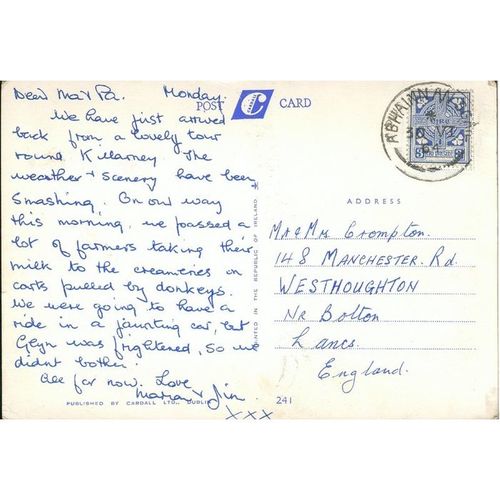 Dear Ma & Pa. Monday.
POST CARD
We have just arrived
back from a lovely tour
round Killarney. The
weather & scenery have been
Smashing. On our way
this morning, we passed a
lot of farmers taking their
milk to the creameries on
carts pulled by donkeys.
We were going to have a
ride in a jaunting car, but
Glyn was frightened, so we
didnt bother.
All for now. Love
Marian & Jim
xxx
PUBLISHED BY CARDALL LTD., DUBLIN
PRINTED IN THE REPUBLIC OF IRELAND
241
30 VI
64
ADDRESS
Mr & Mrs Crompton.
148 MANCHESTER. Rd.
WESTHOUGHTON
Nr Bolton
Lancs.
England.